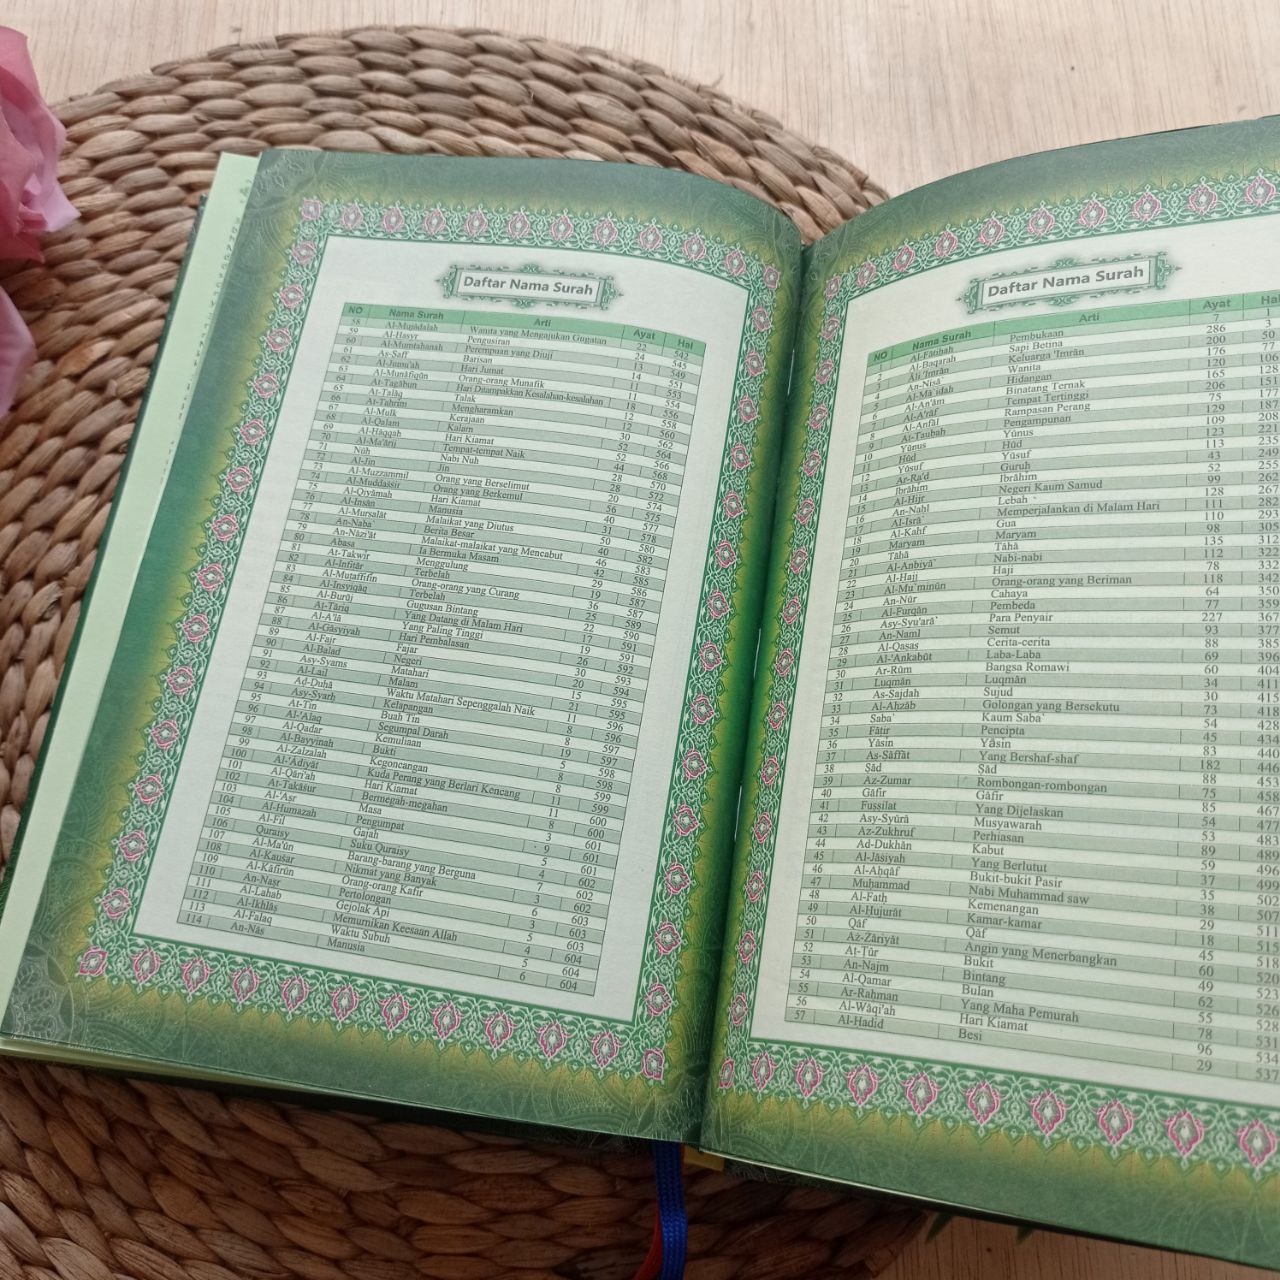 Daftar Nama Surah
NO Nama Surah Arti Ayat Hal
1 Al-Fātiḥah Pembukaan 7 1
2 Al-Baqarah Sapi Betina 286 3
3 Āli 'Imrān Keluarga 'Imrān 200 50
4 An-Nisā` Wanita 176 77
5 Al-Mā`idah Hidangan 120 106
6 Al-An'ām Binatang Ternak 165 128
7 Al-A'rāf Tempat Tertinggi 206 151
8 Al-Anfāl Rampasan Perang 75 177
9 At-Taubah Pengampunan 129 187
10 Yūnus Yūnus 109 208
11 Hūd Hūd 123 221
12 Yūsuf Yūsuf 111 235
13 Ar-Ra'd Guruh 43 249
14 Ibrāhīm Ibrāhīm 52 255
15 Al-Ḥijr Negeri Kaum Samud 99 262
16 An-Naḥl Lebah 128 267
17 Al-Isrā` Memperjalankan di Malam Hari 111 282
18 Al-Kahf Gua 110 293
19 Maryam Maryam 98 305
20 Ṭāhā Ṭāhā 135 312
21 Al-Anbiyā` Nabi-nabi 112 322
22 Al-Ḥajj Haji 78 332
23 Al-Mu`minūn Orang-orang yang Beriman 118 342
24 An-Nūr Cahaya 64 350
25 Al-Furqān Pembeda 77 359
26 Asy-Syu'arā` Para Penyair 227 367
27 An-Naml Semut 93 377
28 Al-Qaṣaṣ Cerita-cerita 88 385
29 Al-'Ankabūt Laba-Laba 69 396
30 Ar-Rūm Bangsa Romawi 60 404
31 Luqmān Luqmān 34 411
32 As-Sajdah Sujud 30
33 Al-Aḥzāb Golongan yang Bersekutu 73 418
34 Saba` Kaum Saba` 54 428
35 Fāṭir Pencipta 45 434
36 Yāsīn Yāsīn 83 440
37 Aṣ-Ṣāffāt Yang Bershaf-shaf 182 446
38 Ṣād Ṣād 88 453
39 Az-Zumar Rombongan-rombongan 75 458
40 Gāfir Gāfir 85 467
41 Fuṣṣilat Yang Dijelaskan 54 477
42 Asy-Syūrā Musyawarah 53 483
43 Az-Zukhruf Perhiasan 89 489
44 Ad-Dukhān Kabut 59 496
45 Al-Jāṡiyah Yang Berlutut 37 499
46 Al-Aḥqāf Bukit-bukit Pasir 35 502
47 Muḥammad Nabi Muhammad saw 38 507
48 Al-Fatḥ Kemenangan 29 511
49 Al-Ḥujurāt Kamar-kamar 18 515
50 Qāf Qāf 45 518
51 Az-Zāriyāt Angin yang Menerbangkan 60 520
52 Aṭ-Ṭūr Bukit 49 523
53 An-Najm Bintang 62 526
54 Al-Qamar Bulan 55 528
55 Ar-Raḥman Yang Maha Pemurah 78 531
56 Al-Wāqi'ah Hari Kiamat 96 534
57 Al-Ḥadīd Besi 29 537
Daftar Nama Surah
NO Nama Surah Arti Ayat Hal
58 Al-Mujādalah Wanita yang Mengajukan Gugatan 22 542
59 Al-Ḥasyr Pengusiran 24 545
60 Al-Mumtaḥanah Perempuan yang Diuji 13 549
61 Aṣ-Ṣaff Barisan 14 551
62 Al-Jumu'ah Hari Jumat 11 553
63 Al-Munāfiqūn Orang-orang Munafik 11 554
64 At-Tagābun Hari Ditampakkan Kesalahan-kesalahan 18 556
65 Aṭ-Ṭalāq Talak 12 558
66 At-Taḥrīm Mengharamkan 12 560
67 Al-Mulk Kerajaan 30 562
68 Al-Qalam Kalam 52 564
69 Al-Ḥāqqah Hari Kiamat 52 566
70 Al-Ma'ārij Tempat-tempat Naik 44 568
71 Nūḥ Nabi Nuh 28 570
72 Al-Jin Jin 28 572
73 Al-Muzzammil Orang yang Berselimut 20 574
74 Al-Muddaṡṡir Orang yang Berkemul 56 575
75 Al-Qiyāmah Hari Kiamat 40 577
76 Al-Insān Manusia 31 578
77 Al-Mursalāt Malaikat yang Diutus 50 580
78 An-Naba` Berita Besar 40 582
79 An-Nāzi'āt Malaikat-malaikat yang Mencabut 46 583
80 Abasa Ia Bermuka Masam 42 585
81 At-Takwīr Menggulung 29 586
82 Al-Infiṭār Terbelah 19 587
83 Al-Muṭaffifīn Orang-orang yang Curang 36 587
84 Al-Insyiqāq Terbelah 25 589
85 Al-Burūj Gugusan Bintang 22 590
86 Aṭ-Ṭāriq Yang Datang di Malam Hari 17 591
87 Al-A'lā Yang Paling Tinggi 19 591
88 Al-Gāsyiyah Hari Pembalasan 26 592
89 Al-Fajr Fajar 30 593
90 Al-Balad Negeri 20 594
91 Asy-Syams Matahari 15 595
92 Al-Lail Malam 21 595
93 Aḍ-Ḍuḥā Waktu Matahari Sepenggalah Naik 11 596
94 Asy-Syarḥ Kelapangan 8 596
95 At-Tīn Buah Tin 8 597
96 Al-'Alaq Segumpal Darah 19 597
97 Al-Qadar Kemuliaan 5 598
98 Al-Bayyinah Bukti 8 598
99 Al-Zalzalah Kegoncangan 8 599
100 Al-'Ādiyāt Kuda Perang yang Berlari Kencang 11 599
101 Al-Qāri'ah Hari Kiamat 11 600
102 At-Takāṡur Bermegah-megahan 8 600
103 Al-'Aṣr Masa 3 601
104 Al-Humazah Pengumpat 9 601
105 Al-Fīl Gajah 5 601
106 Quraisy Suku Quraisy 4 602
107 Al-Ma'ūn Barang-barang yang Berguna 7 602
108 Al-Kauṡar Nikmat yang Banyak 3 602
109 Al-Kāfirūn Orang-orang Kafir 6 603
110 An-Naṣr Pertolongan 3 603
111 Al-Lahab Gejolak Api 5 603
112 Al-Ikhlāṣ Memurnikan Keesaan Allah 4 604
113 Al-Falaq Waktu Subuh 5 604
114 An-Nās Manusia 6 604